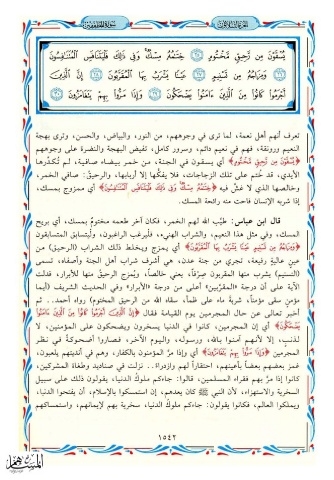 الجزء الثلاثون
سورة المطففين
يُسْقَوْنَ مِن رَّحِيقٍ مَّخْتُومٍ ۝ خِتَامُهُ مِسْكٌ وَفِي ذَلِكَ فَلْيَتَنَافَسِ الْمُتَنَافِسُونَ
۝ وَمِزَاجُهُ مِن تَسْنِيمٍ ۝ عَيْنًا يَشْرَبُ بِهَا الْمُقَرَّبُونَ ۝ إِنَّ الَّذِينَ
أَجْرَمُوا كَانُوا مِنَ الَّذِينَ ءَامَنُوا يَضْحَكُونَ ۝ وَإِذَا مَرُّوا بِهِمْ يَتَغَامَزُونَ ۝
تعرف أنهم أهل نعمة، لما ترى في وجوههم، من النور، والبياض، والحسن، وترى بهجة
النعيم ورونقه، فهم في نعيم دائم، وسرور كامل، تفيض البهجة والنضرة على وجوههم
﴿يُسْقَوْنَ مِن رَّحِيقٍ مَّخْتُومٍ﴾ أي يسقون في الجنة، من خمر بيضاء صافية، لم تُكدّرها
الأيدي، قد خُتم على تلك الزجاجات، فلا يفكُّها إلا أربابها، والرحيقُ: صافي الخمر،
وخالصها الذي لا غشّ فيه ﴿خِتَامُهُ مِسْكٌ وَفِي ذَلِكَ فَلْيَتَنَافَسِ الْمُتَنَافِسُونَ﴾ أي ممزوج بمسك،
إذا شربه الإنسان فاحت منه رائحة المسك.
قال ابن عباس: طيَّب الله لهم الخمر، فكان آخر طعمه مختومٌ بمسك، أي بريح
المسك، وفي مثل هذا النعيم، والشراب الهنيء، فليرغب الراغبون، وليتسابق المتسابقون
﴿وَمِزَاجُهُ مِن تَسْنِيمٍ ۝ عَيْنًا يَشْرَبُ بِهَا الْمُقَرَّبُونَ﴾ أي يمزج ويخلط ذلك الشراب (الرحيق) من
عينٍ عاليةٍ رفيعة، تجري من جنة عدن، هي أشرف شراب أهل الجنة وأصفاه، تسمى
(التسنيم) يشرب منها المقربون صِرْفاً، يعني خالصاً، ويُمزج الرحيقُ منها للأبرار، فدلت
الآية على أن درجة «المقرَّبين» أعلى من درجة «الأبرار» وفي الحديث الشريف (أيما
مؤمنٍ سقى مؤمناً، شربةَ ماء على ظمأ، سقاه الله من الرحيق المختوم) رواه أحمد.. ثم
أخبر تعالى عن حال المجرمين يوم القيامة فقال ﴿إِنَّ الَّذِينَ أَجْرَمُوا كَانُوا مِنَ الَّذِينَ ءَامَنُوا
يَضْحَكُونَ﴾ أي إن المجرمين، كانوا في الدنيا يسخرون ويضحكون على المؤمنين، لا
لذنبٍ، إلا لأنهم آمنوا بالله، ورسوله، واليوم الآخر، فصاروا أضحوكةً في نظر
المجرمين ﴿وَإِذَا مَرُّوا بِهِمْ يَتَغَامَزُونَ﴾ أي وإذا مرَّ المؤمنون بالكفار، وهم في أنديتهم يلعبون،
غمز بعضهم بعضاً بأعينهم، احتقاراً لهم وازدراءً.. نزلت في صناديد وطغاة المشركين،
كانوا إذا مرَّ بهم فقراء المسلمين، قالوا: جاءكم ملوكُ الدنيا، يقولون ذلك على سبيل
السخرية والاستهزاء، لأن النبي ﷺ كان يعدهم، إن استمسكوا بالإسلام، أن يفتحوا الدنيا،
ويملكوا العالم، فكانوا يقولون: جاءكم ملوك الدنيا، سخرية بهم لإيمانهم، واستمساكهم
١٥٤٢